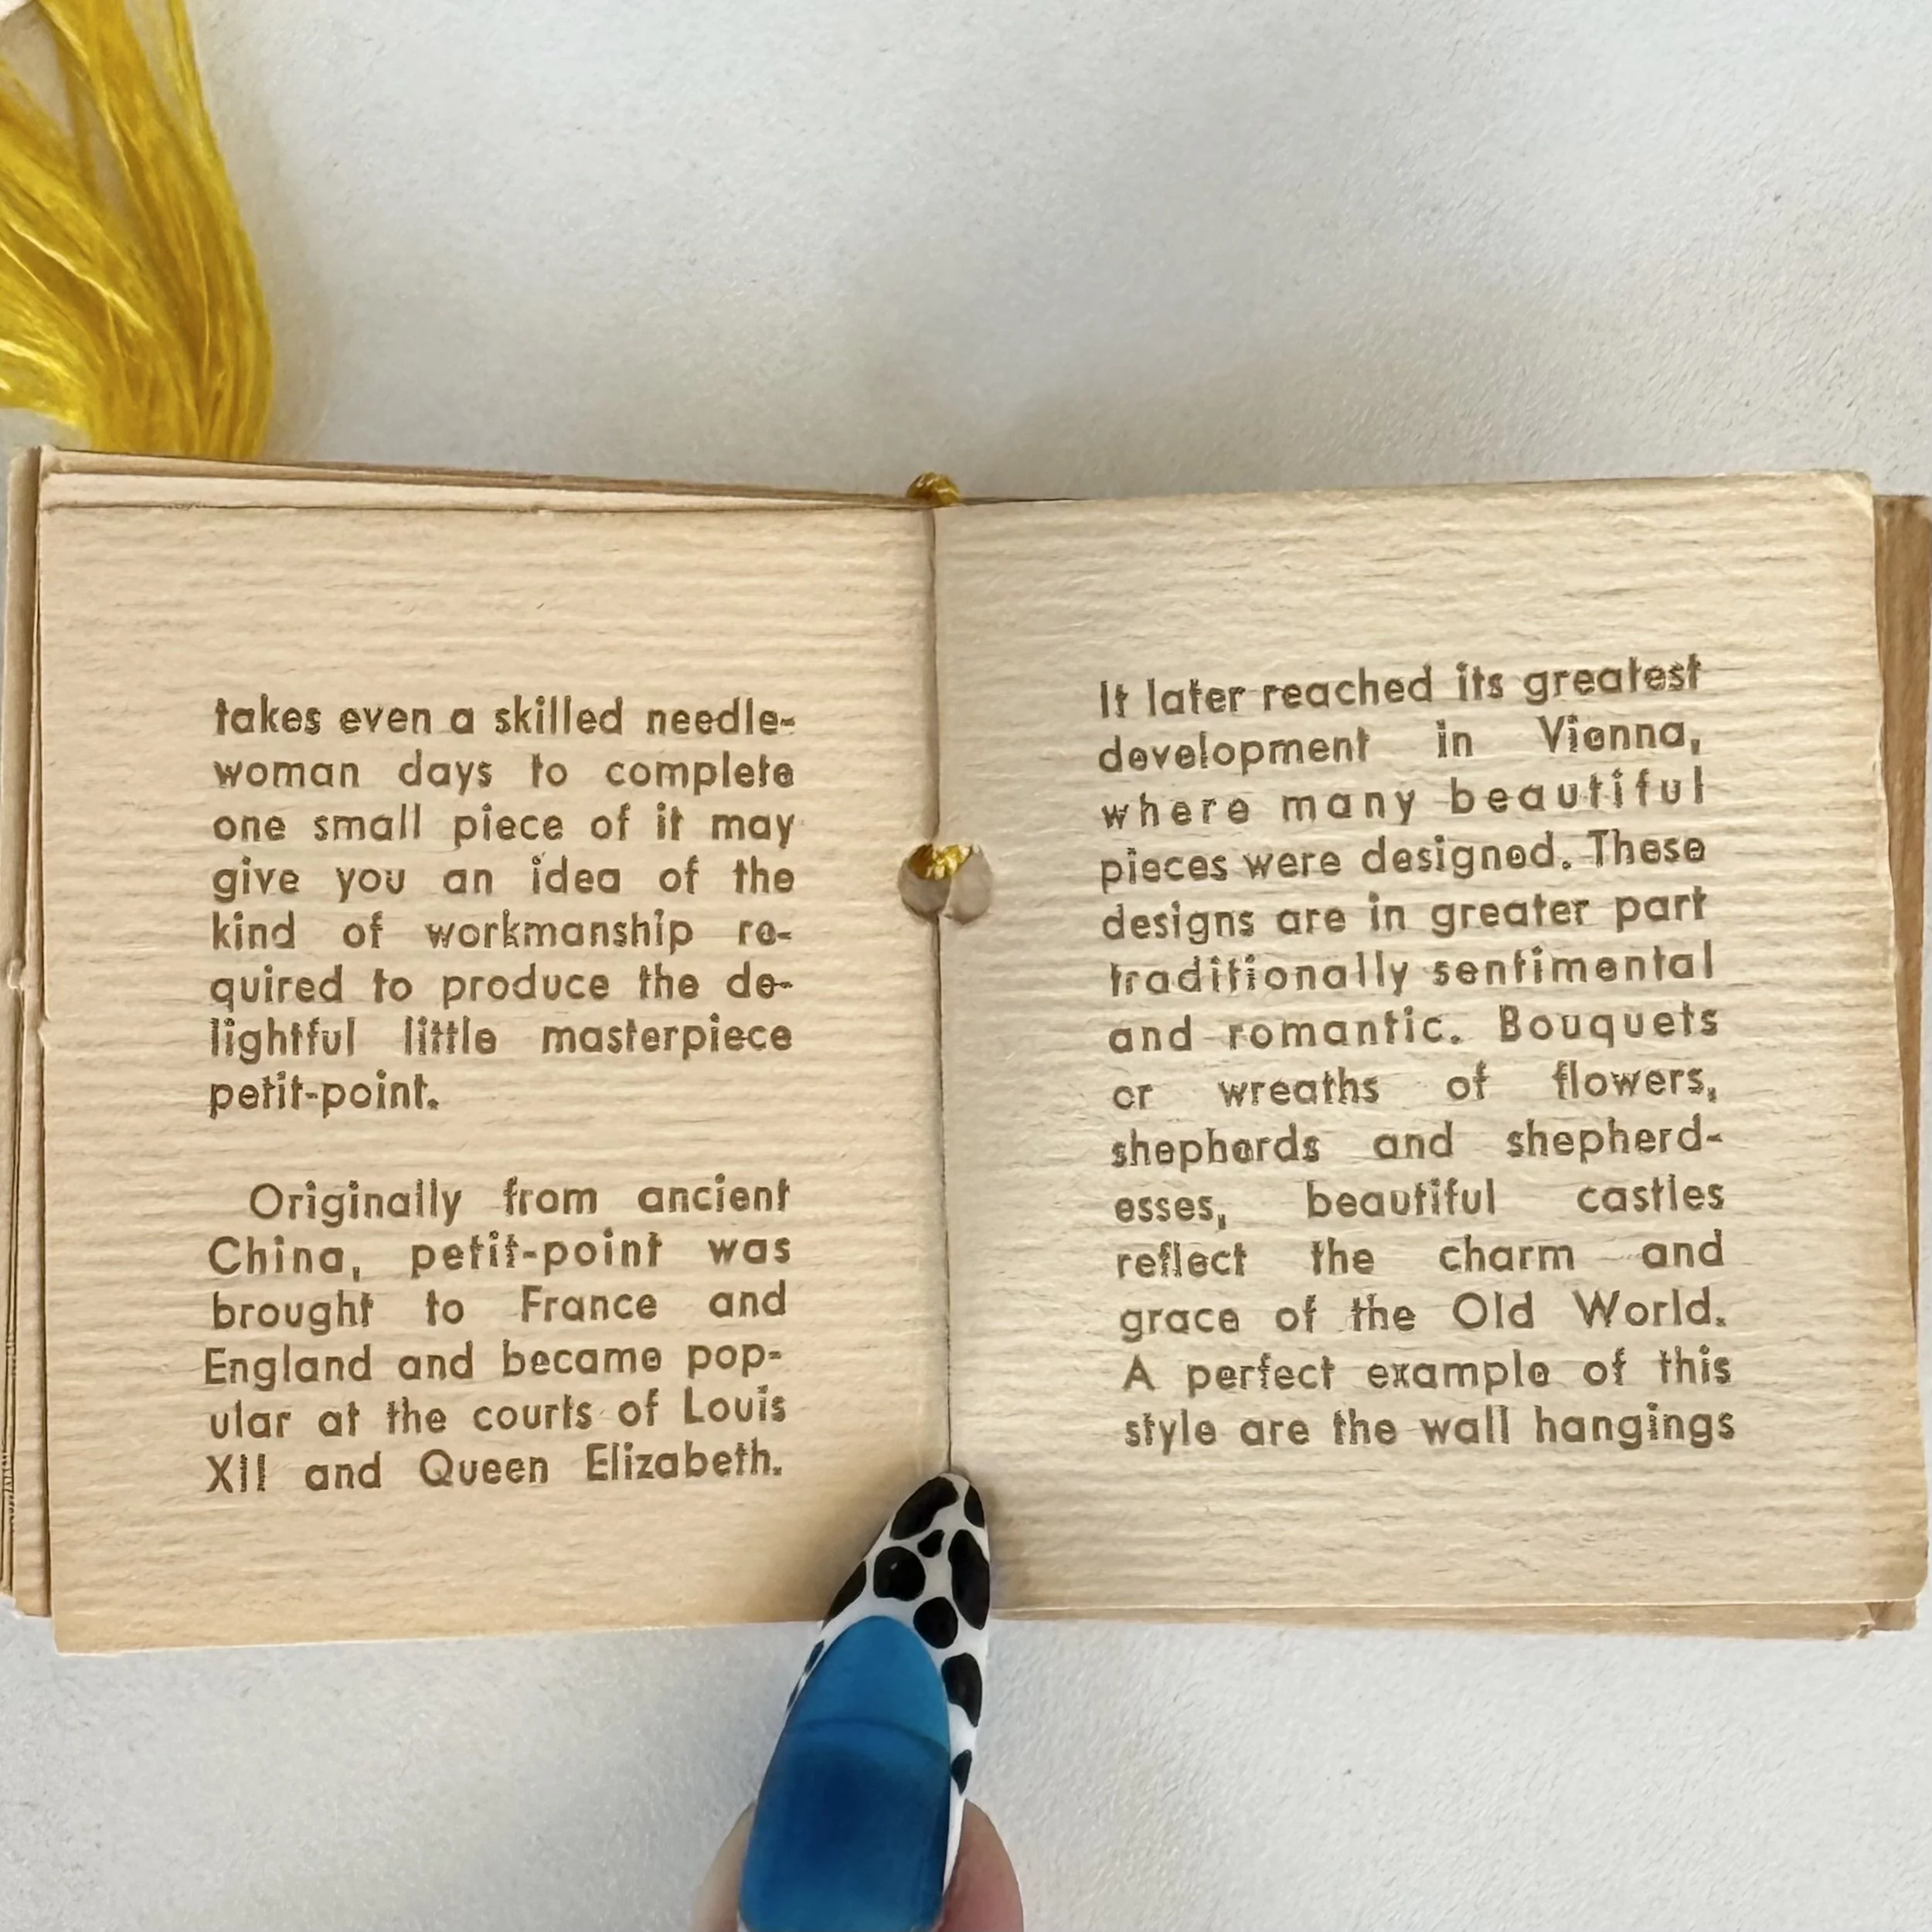 takes even a skilled needle-
woman days to complete
one small piece of it may
give you an idea of the
kind of workmanship re-
quired to produce the de-
lightful little masterpiece
petit-point.
Originally from ancient
China, petit-point was
brought to France and
England and became pop-
ular at the courts of Louis
XII and Queen Elizabeth.
It later reached its greatest
development in Vienna,
where many beautiful
pieces were designed. These
designs are in greater part
traditionally sentimental
and romantic. Bouquets
or wreaths of flowers,
shepherds and shepherd-
esses, beautiful castles
reflect the charm and
grace of the Old World.
A perfect example of this
style are the wall hangings